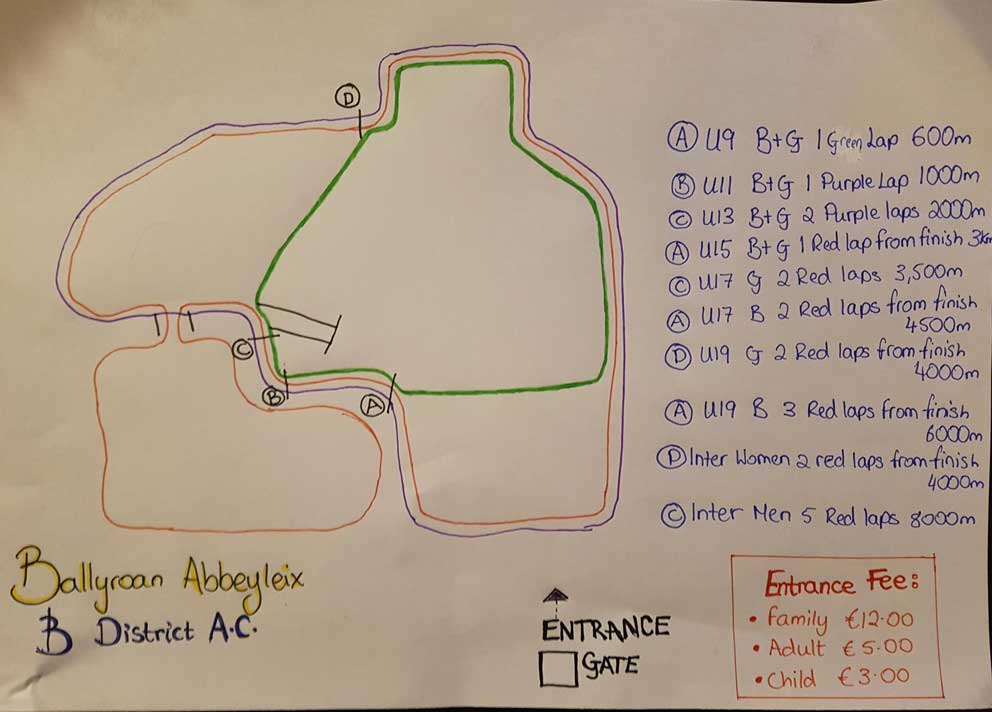 D
C
B
A
A U9 B+G 1 Green Lap 600m
B U11 B+G 1 Purple Lap 1000m
C U13 B+G 2 Purple laps 2000m
A U15 B+G 1 Red lap from finish 3km
C U17 G 2 Red laps 3,500m
A U17 B 2 Red laps from finish
4500m
D U19 G 2 Red laps from finish
4000m
A U19 B 3 Red laps from finish
6000m
D Inter Women 2 red laps from finish
4000m
C Inter Men 5 Red laps 8000m
Ballyroan Abbeyleix
B District A.C.
ENTRANCE
GATE
Entrance Fee:
• Family €12.00
• Adult €5.00
• Child €3.00